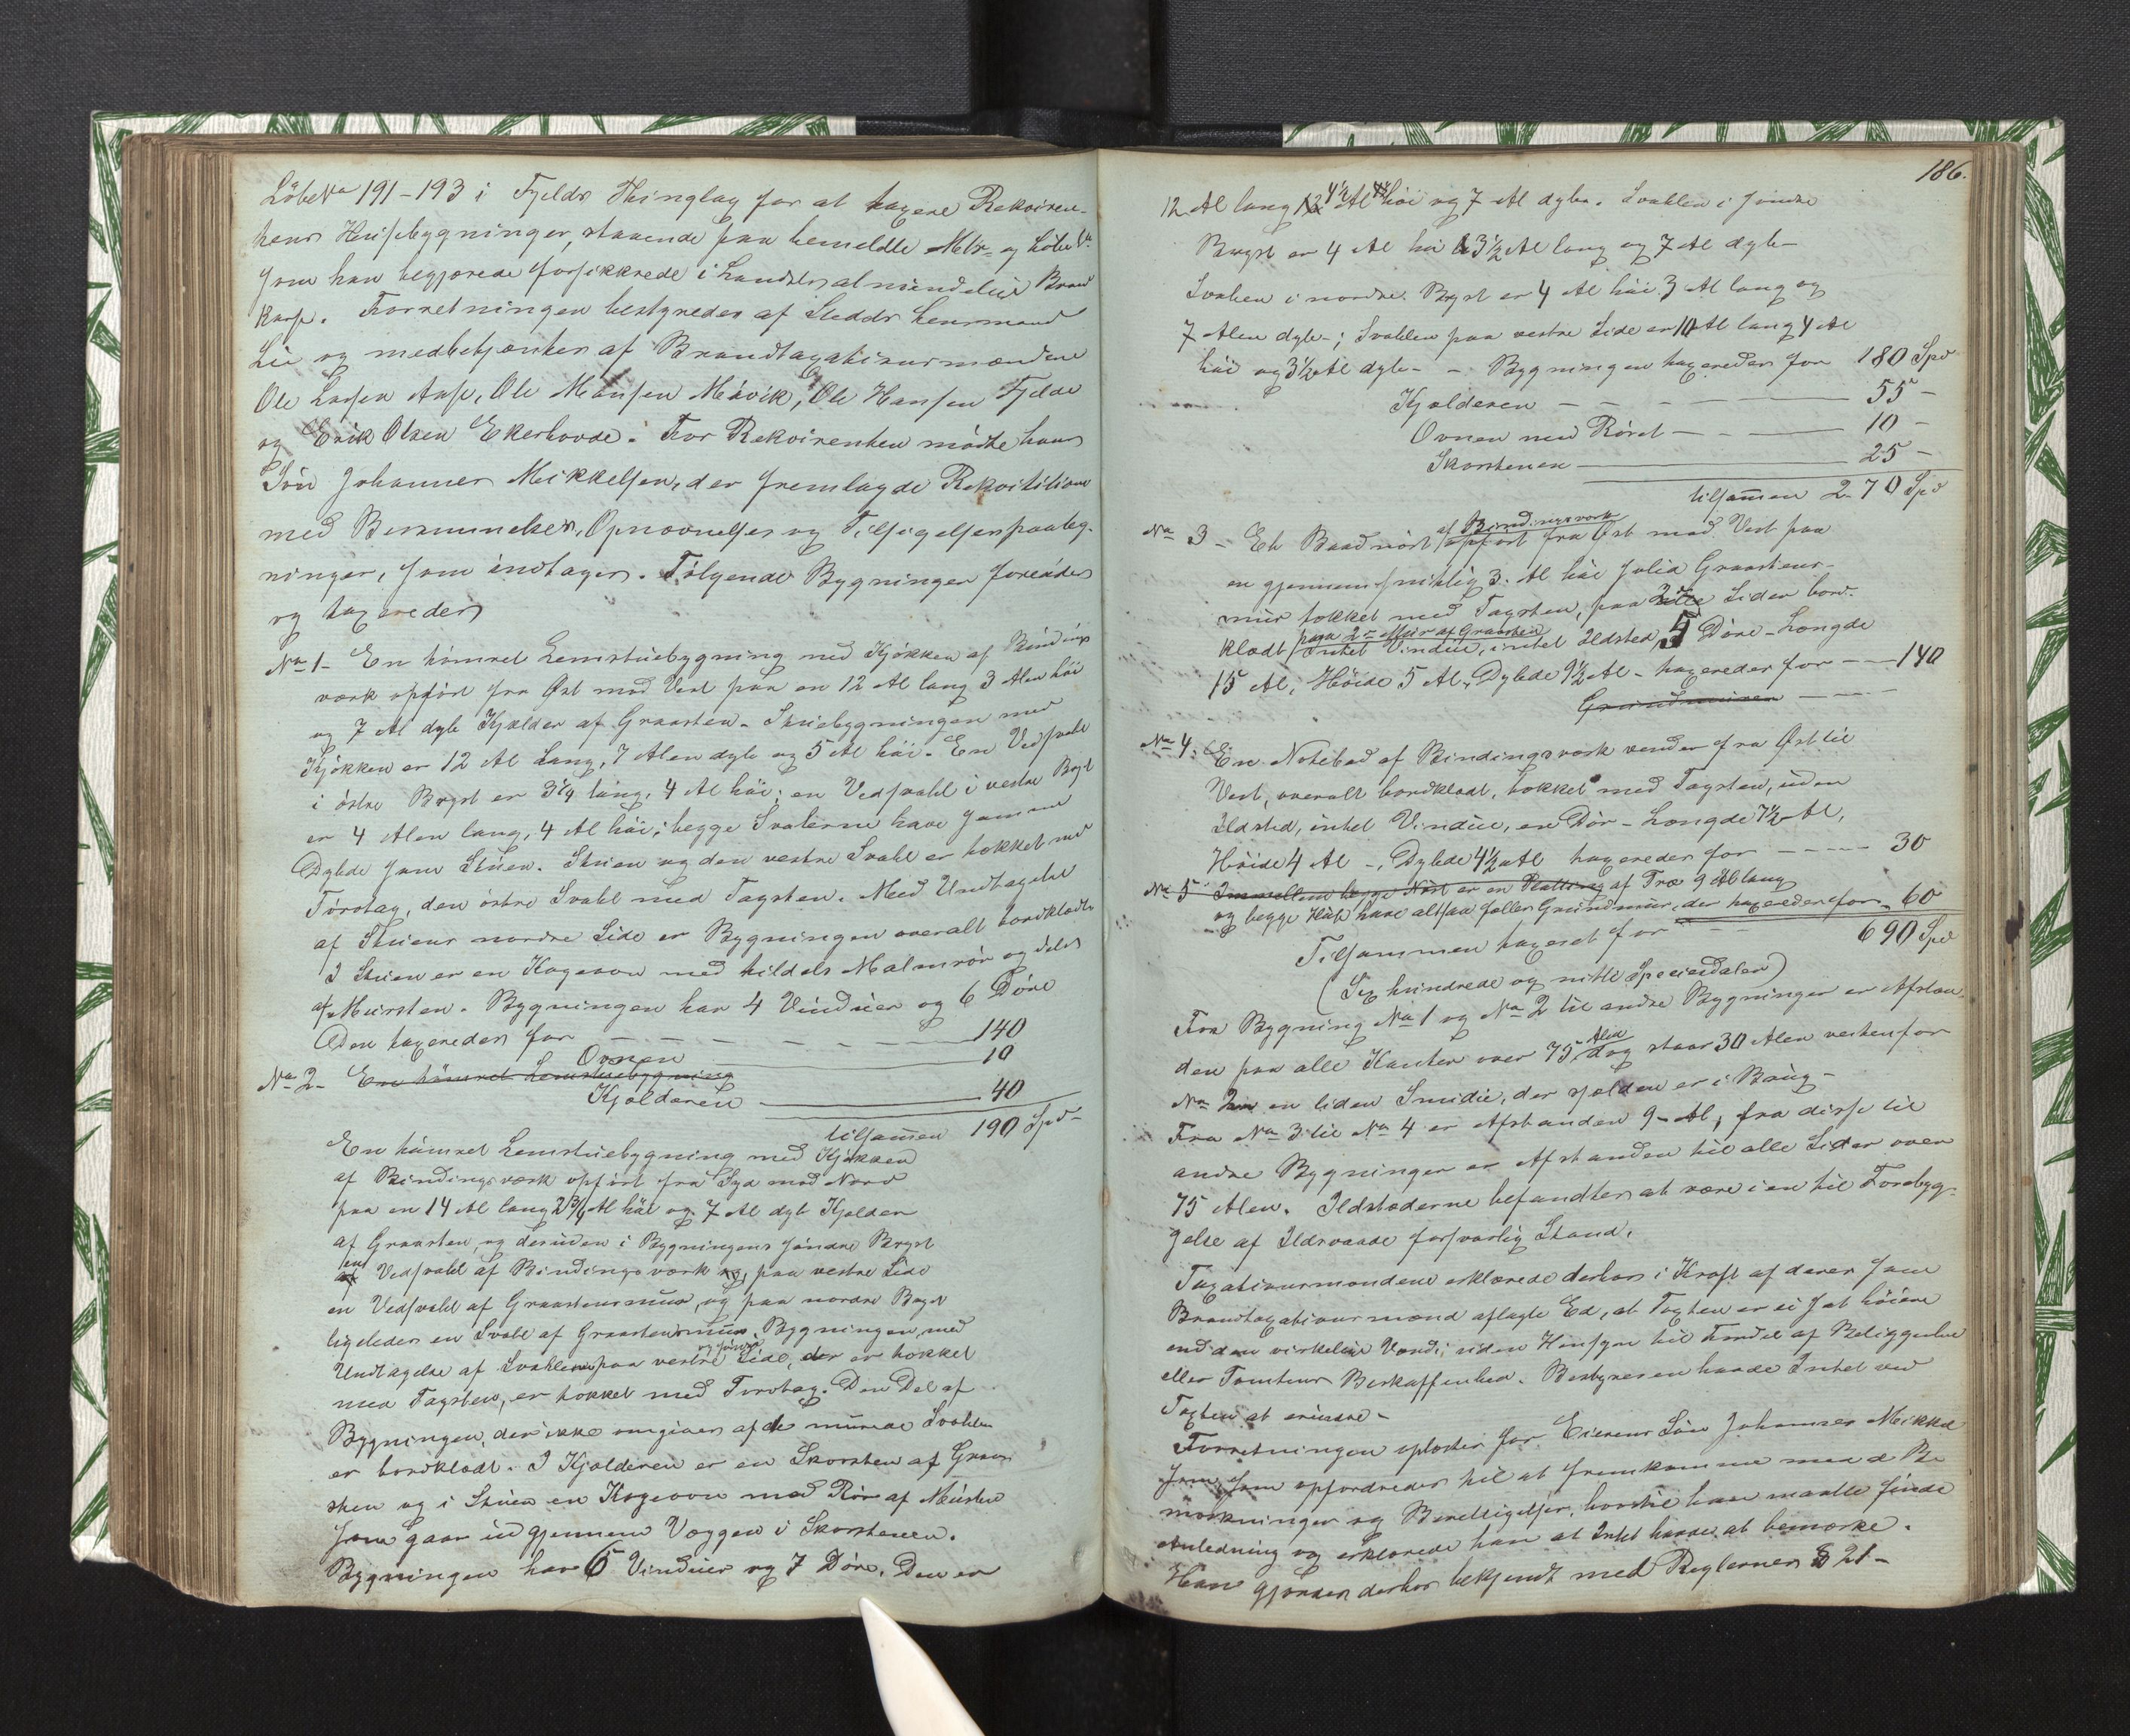 Löbe No 191-193 i Fjelds Thinglag for at taxere Rekviren-
tens Huusebygninger, staaende paa bemeldte Mtr- og Löbe No
som han begjærede forsikkrede i Landets almindelige Brand
kasse. Forretningen bestyredes af Stedets Lensmand
Lie og medbetjentes af Brandtaxationsmændene
Ole Larsen Aase, Ole Monsen Misvik, Ole Hansen Fjelde
og Erik Olsen Ekerhovde. For Rekvirenten mödte hans
Sön Johannes Mikkelsen, der fremlagde Rekvisitionen
med Berammelses, Opnævnelses og Tilsigelsespaateg-
ninger, som indtages. Fölgende Bygninger foreviistes
og taxeredes
No 1- En tömret Lemstuebygning med Kjökken af Bindings
værk opfört fra Öst mod Vest paa en 12 Al lang 3 Alen höi
og 7 Al dyb Kjælder af Graasten. Stuebygningen med
Kjökken er 12 Al Lang, 7 Alen dyb og 5 Al höi. En Vedsvahl
i östre Bryst er 3 1/4 lang, 4 Al höi; en Vedsvahl i vestre Bryst
er 4 Alen lang, 4 Al höi; begge Svalerne have samme
Dybde som Stuen. Stuen og den vestre Svahl er tækket med
Törvtag, den östre Svahl med Tagsten. Med Undtagelse
af Stuens nordre Side er Bygningen overalt bordklædt
I Stuen er en Kogeovn med tildels Malmrör og dels
af Mursten. Bygningen har 4 Vinduer og 6 Döre
Den taxeredes for - - - - - 140
Ovnen 10
No 2- En tömret Lemstuebygning
Kjælderen 40
tilsammen 190 Spd-
En tömret Lemstuebygning med Kjökken
af Bindingsværk opfört fra Syd mod Nord
paa en 14 Al lang 2 3/4 Al höi og 7 Al dyb Kjelder
af Graasten, og desuden i Bygningens söndre Bryst
en Vedsvahl af Bindingsværk og, paa vestre Side
en Vedsvahl af Graastensmuur, og paa nordre Bryst
ligeledes en Svahl af Graastensmuur. Bygningen, med
Undtagelse af Svahlen paa vestre og söndre Side, der er tækket
med Tagsten, er tækket med Torvtag. Den Del af
Bygningen, der ikke omgives af de murede Svahler
er bordklædt. I Kjælderen er en Skorsten af Graa
sten og i Stuen en Kogeovn med Rör af Mursten
som gaar ud gjennem Væggen i Skorstenen.
Bygningen har 6 Vinduer og 7 Döre. Den er
186.
12 Al lang 4 1/2 Al höi og 7 Al dyb. Svahlen i söndre
Bryst er 4 Al höi 3 1/2 Al lang og 7 Al dyb-
Svalen i nordre Bryst er 4 Al höi 3 Al lang og
7 Alen dyb-; Svahlen paa vestre Side er 10 Al lang 4 Al
höi og 3 1/2 Al dyb- - Bygningen taxeredes for 180 Spd
Kjælderen - - - - 55 -
Ovnen med Röret - - - 10 -
Skorstenen 25 -
tilsammen 270 Spd
No 3 - Et Baadnöst af Bindingsværk opfört fra Öst mod Vest paa
en gjennemsnitlig 3 Al höi solid Graastens-
muur tækket med Tagsten, paa 2 Sider bord-
klædt paa 2de Mur af Graasten intet Vindue, intet Ildsted, 5 Döre - Længde
15 Al, Höide 5 Al, Dybde 9 1/2 Al - taxeredes for - - 140
Grundmuren - - -
No 4. En Notebod af Bindingsværk vender fra Öst til
Vest, overalt bordklædt, tækket med Tagsten, uden
Ildsted, intet Vindue, en Dör - Længde 7 1/2 Al,
Höide 4 Al -, Dybde 4 1/2 Al taxeredes for - - - - 30
No 5 Imellem begge Nöst er en Platting af Træ 9 Al lang
og begge Huse have altsaa fælles Grundmuur, der taxeredes for - 60
Tilsammen taxeret for - - - 690 Spd
(Sex hundrede og nitti Speciesdaler)
Fra Bygning No 1 og No 2 til andre Bygninger er Afstan
den paa alle Kanter over 75 Alen dog staar 30 Alen vestenfor
No 2 en liden Smidie, der sjelden er i Brug -
Fra No 3 til No 4 er Afstanden 9 - Al, fra disse til
andre Bygninger er Afstanden til alle Sider over
75 Alen. Ildstæderne befandtes at være i en til Forebyg-
gelse af Ildsvaade forsvarlig Stand.
Taxationsmændene erklærede derhos i Kraft af deres som
Brandtaxationsmænd aflagte Ed, at Taxten er ei sat höiere
end den virkelige Værdi, uden Hensyn til Fordel af Beliggenhed
eller Tomtens Beskaffenhed. Bestyreren havde Intet ved
Taxten at erindre -
Forretningen oplæstes for Eierens Sön Johannes Mikkel
sen som opfordredes til at fremkomme med de Be
mærkninger og Berettigelser, hvortil han maatte finde
Anledning og erklærede han at Intet havde at bemærke.
Han gjordes derhos bekjendt med Reglerne § 21 -